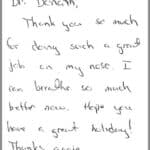 Dr. Denenth,
Thank you so much
for doing such a great
job on my nose. I
can breathe so much
better now. Hope you
have a great holiday!
Thanks again